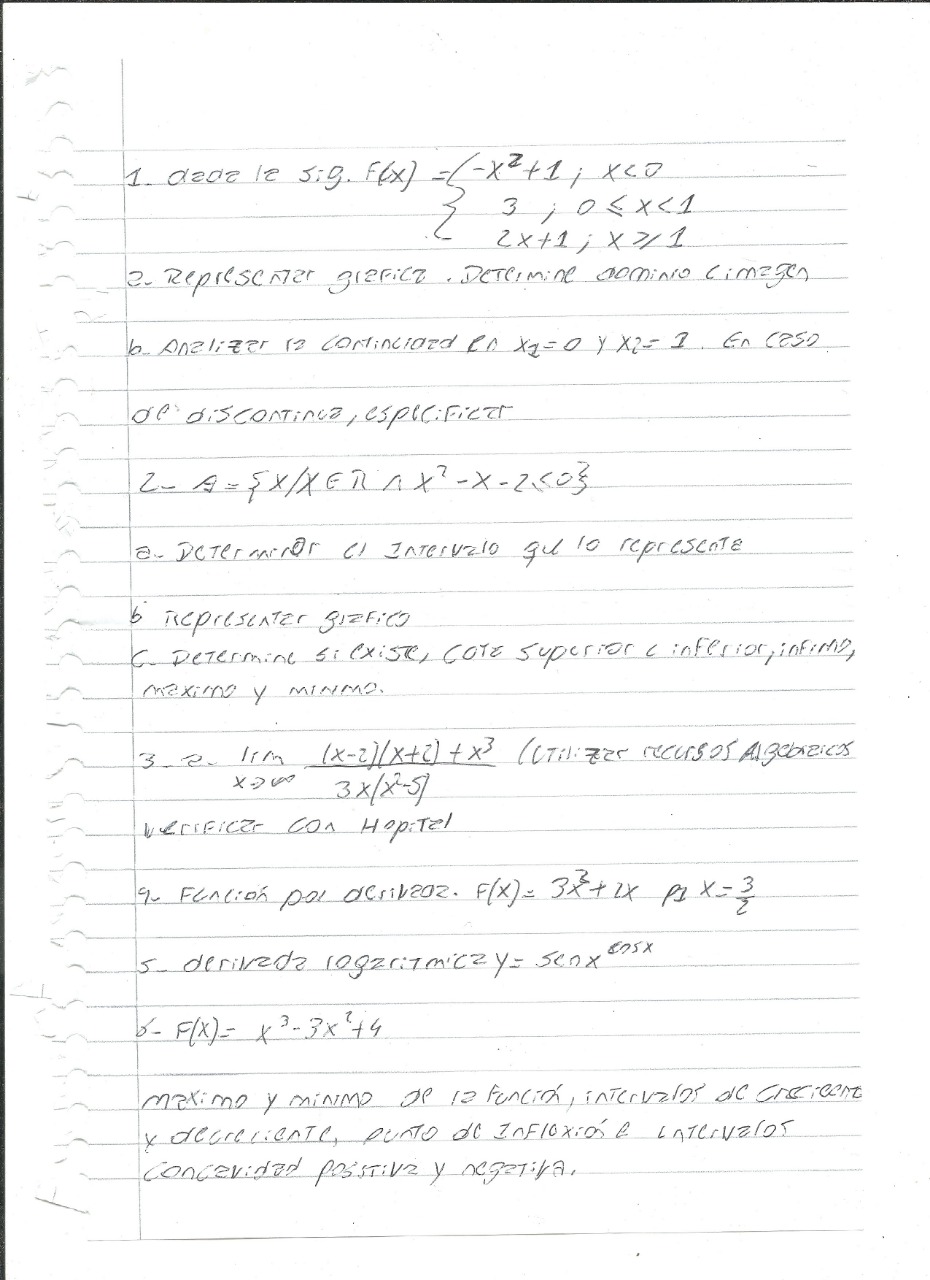 1- dada la sig. F(x) = { -x²+1 ; x<0
3 ; 0 ≤ x < 1
2x+1 ; x ≥ 1
a- Representar grafica. Determine dominio e imagen
b- Analizar la continuidad en x1=0 y x2=1. En caso
de discontinua, especificar
2- A = {x/x ∈ R ∧ x² -x -2 ≤ 0}
a- Determinar el Intervalo que lo representa
b Representar grafico
C- Determine si existe, cota superior e inferior, infimo,
maximo y minimo.
3- a- lim (x-2)(x+2) + x³ (Utilizar recursos Algebraicos
x→∞ 3x(x²-5)
verificar con Hopital
4- Función por derivada. F(x) = 3x²+2x p1 x = 3/2
5- derivada logaritmica y = senx^cosx
6- F(x) = x³ - 3x² + 4
maximo y minimo de la función, intervalos de creciente
y decreciente, punto de Inflexión e intervalos
Concavidad positiva y negativa.